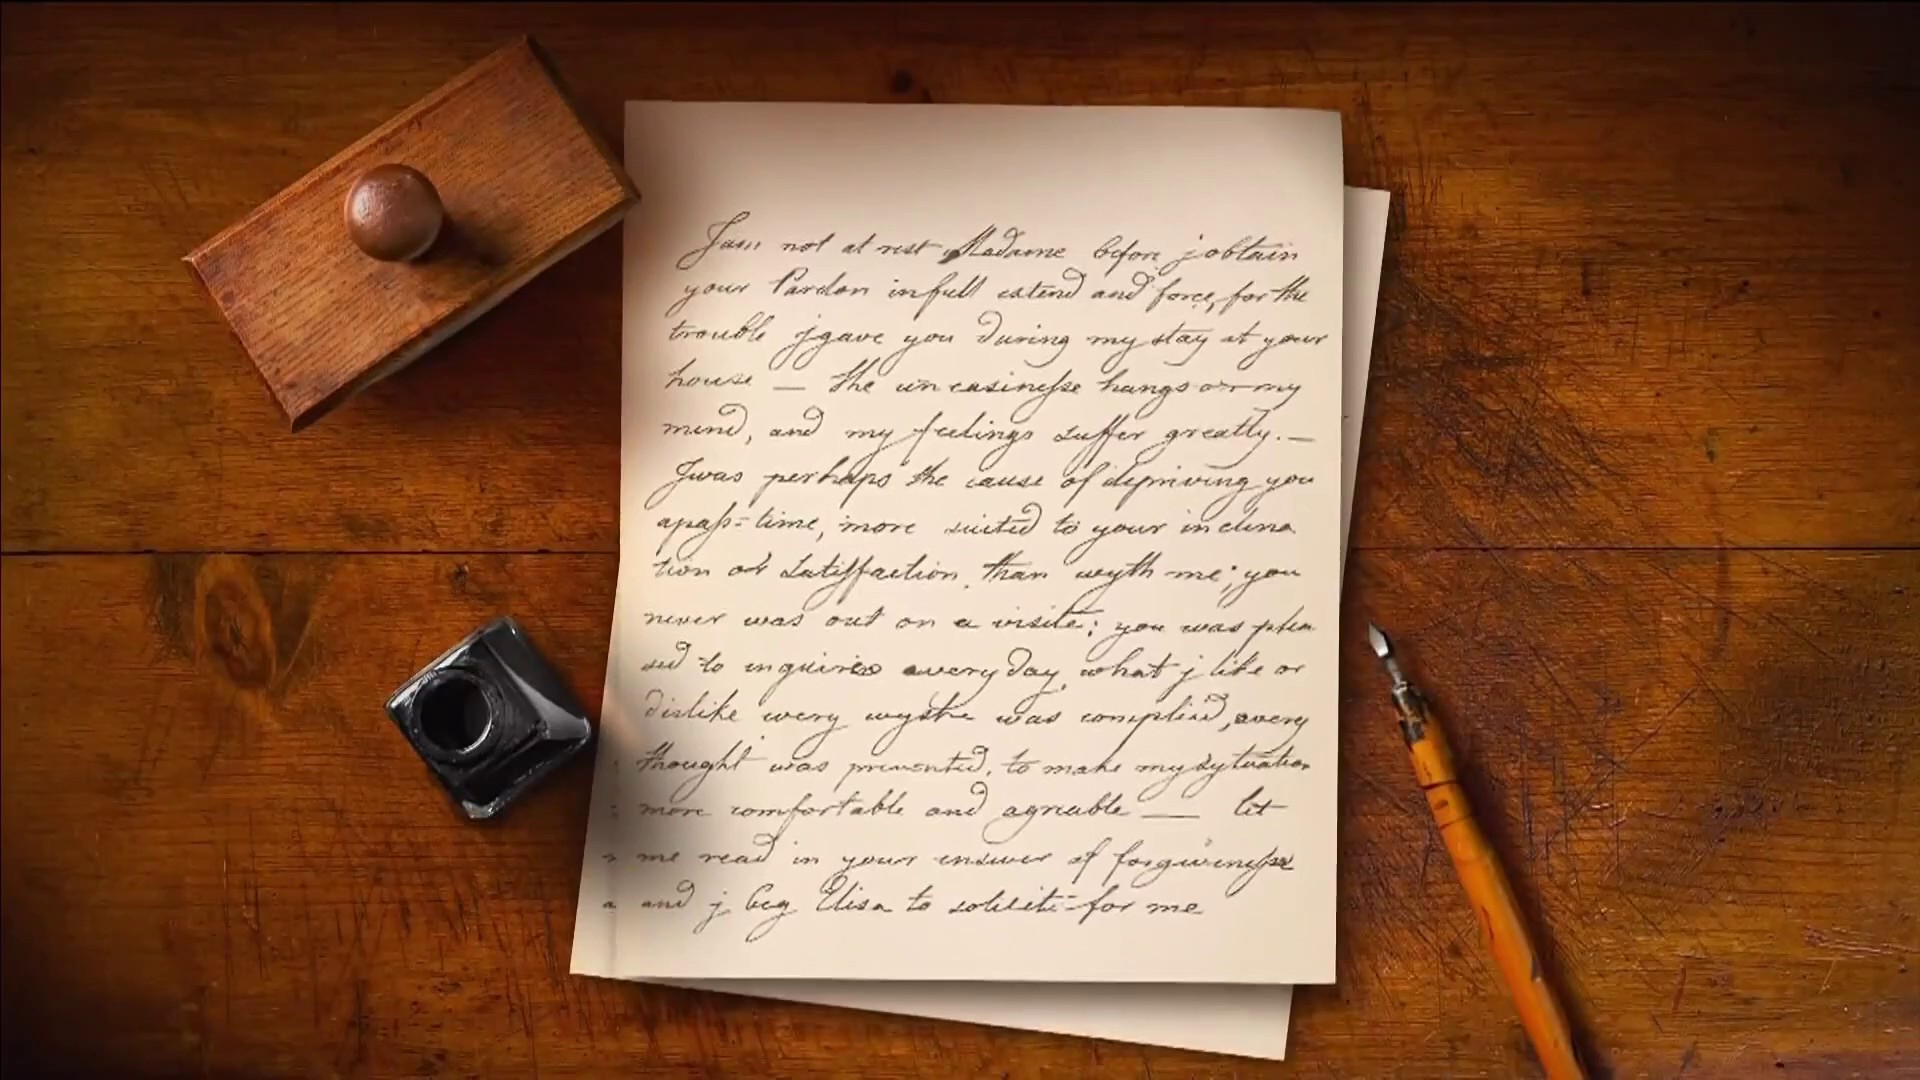 Jam not at rest Madame before j obtain
your Pardon in full extend and force, for the
trouble j gave you during my stay at your
house — the uneasinesse hangs on my
mind, and my feelings suffer greatly. —
J was perhaps the cause of depriving you
a pass=time, more suited to your inclina
tion or Satisfaction, than wyth me; you
never was out on a visite; you was plea
sed to inquire every day, what j like or
dislike every wyshe was complied, every
thought was prevented, to make my sytuation
more comfortable and agreable — let
me read in your enswer of forgivenesse
and j beg Elisa to solicite for me